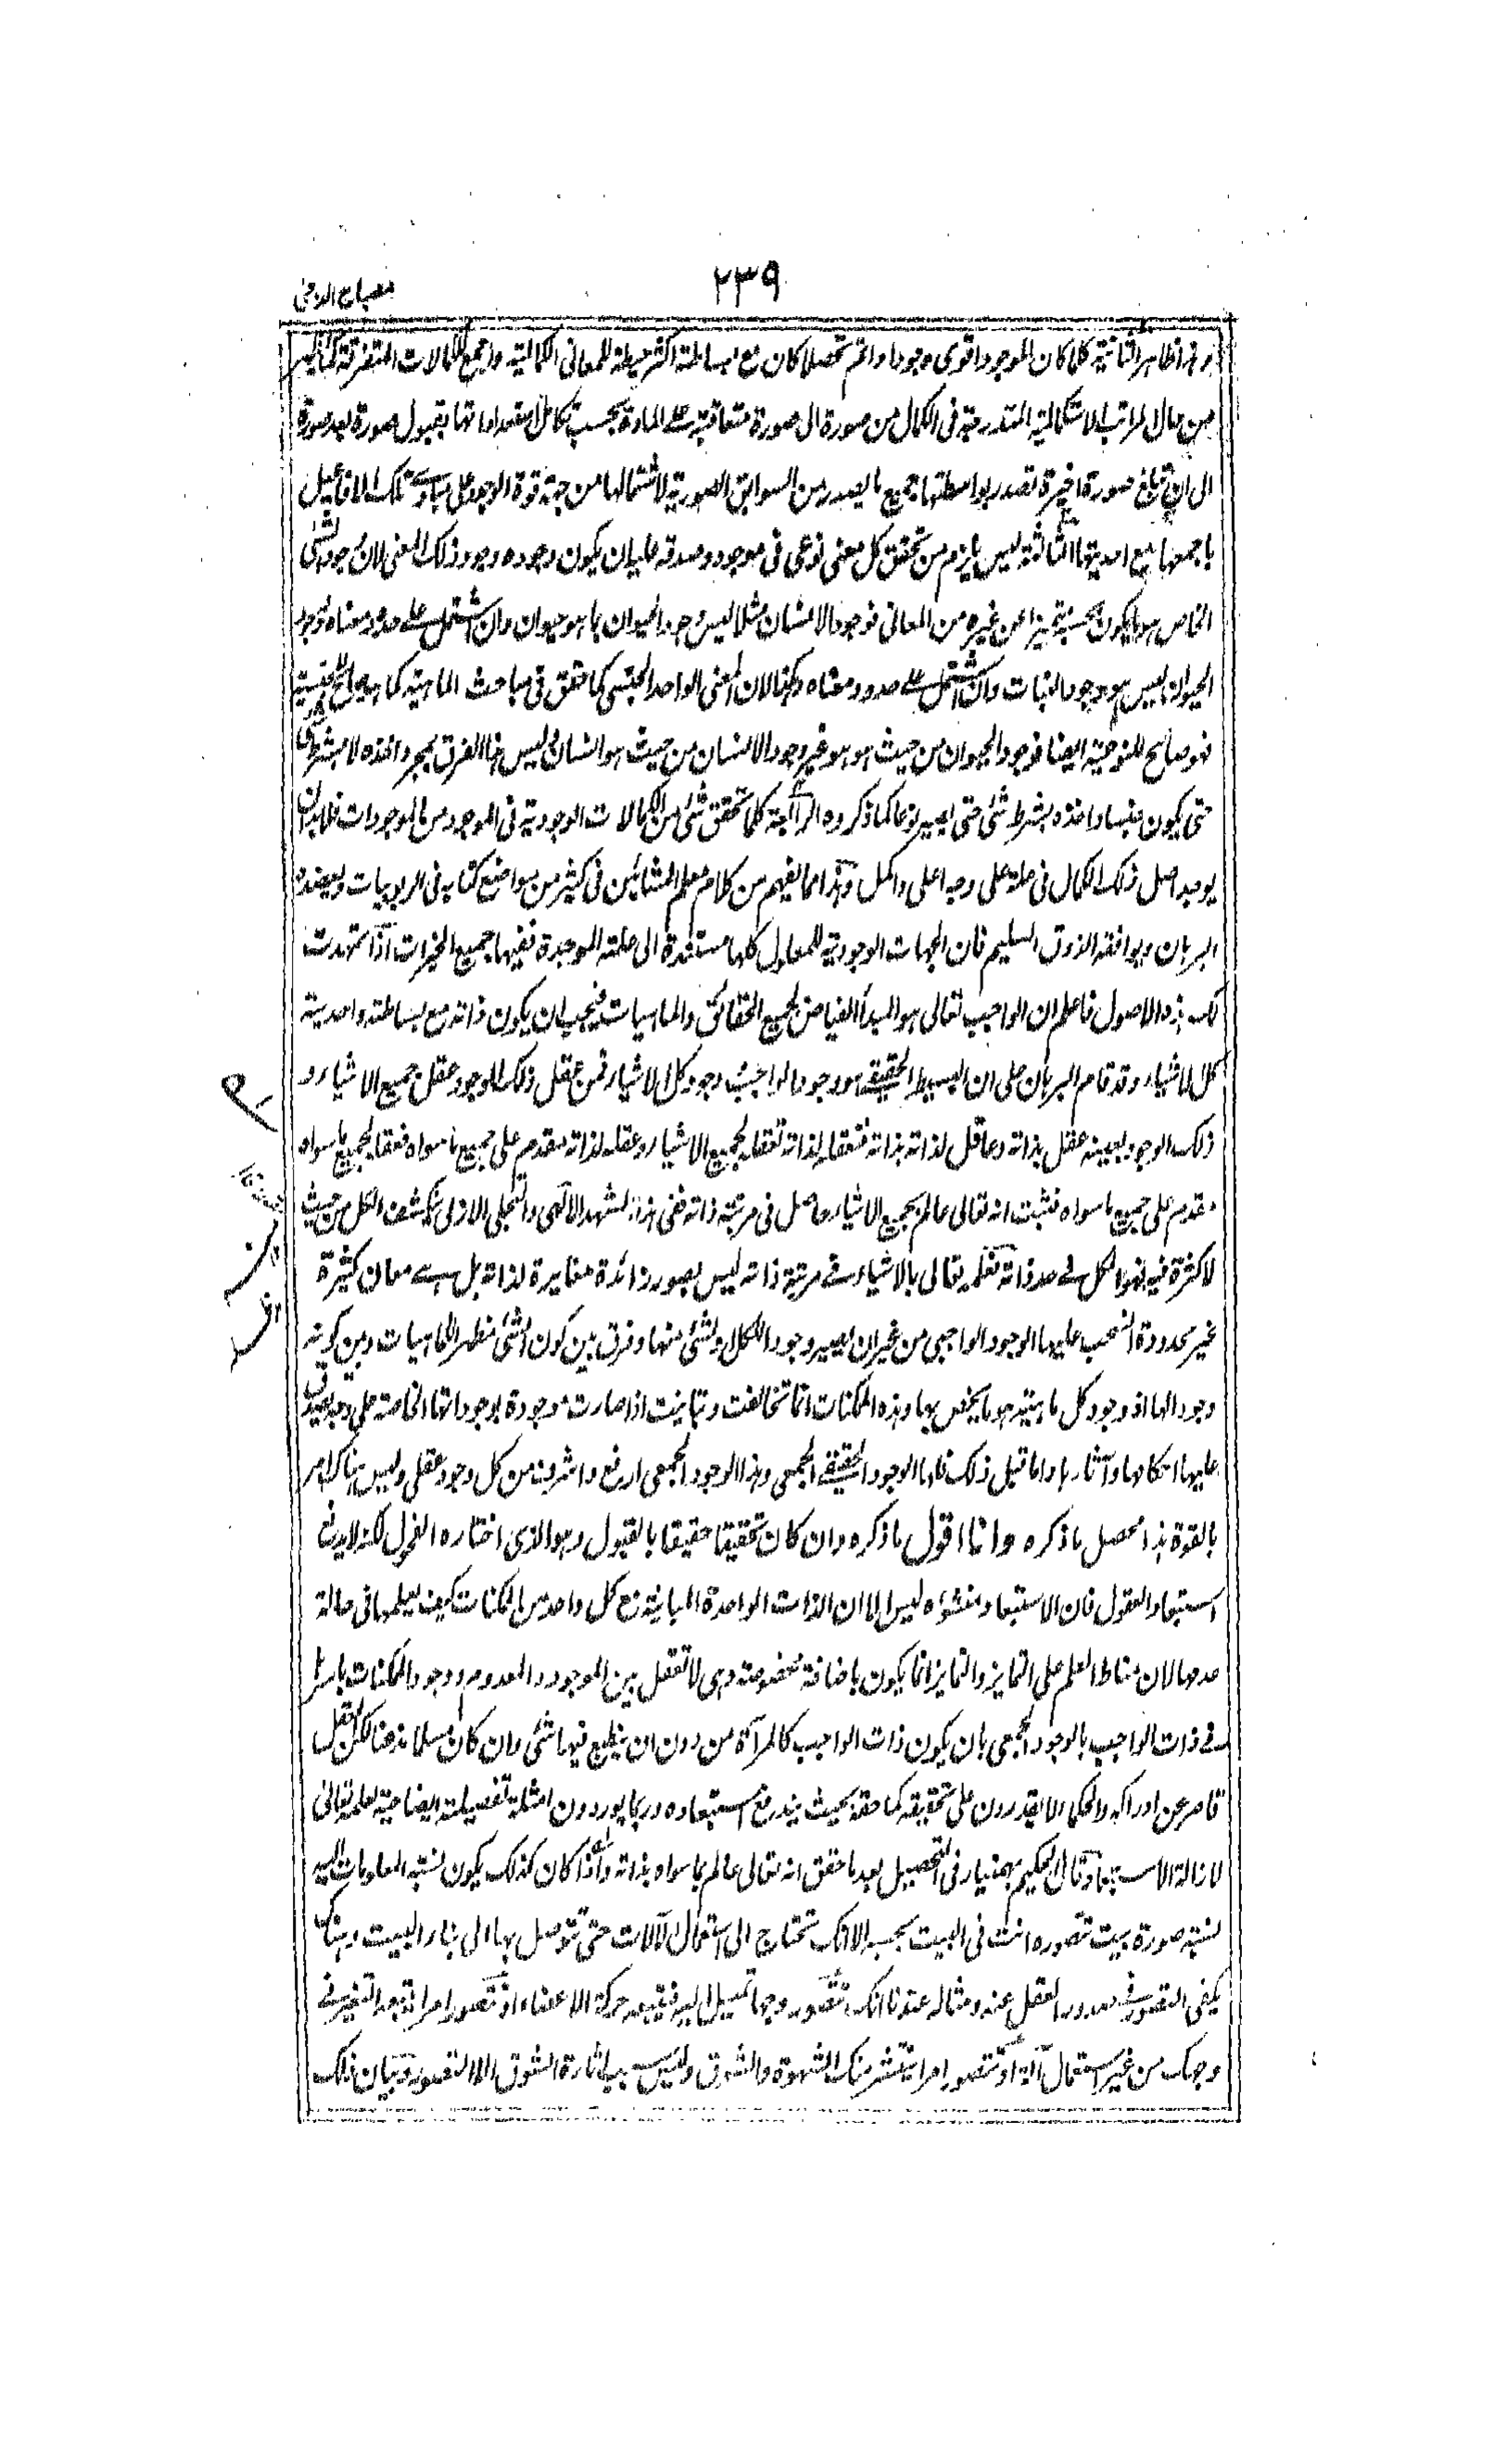 ٢٣٩
مصباح الدجى
وهذا ظاهر الثانية كلما كان الموجود اقوى وجودا واتم تحصلا كان مع بساطته اكثر حيطة للمعانى الكمالية واجمع للكمالات المتفرقة كما يظهر
من حال المراتب الاستكمالية المتدرجة فى الكمال من صورة الى صورة متعاقبة على المادة بحسب تكامل استعداداتها بقبول صورة بعد صورة
الى ان تبلغ صورة اخيرة تصدر بواسطتها جميع ما يصدر من السوابق الصورية لاشتمالها من جهة قوة الوجود على مبادى تلك الافاعيل
باجمعها مع احديتها الثالثة ليس يلزم من تحقق كل معنى نوعى فى موجود وصدقه عليه ان يكون وجوده وجود ذلك المعنى لان وجود الشئ
الخاص هو ما يكون بحسبه متميزا عن غيره من المعانى فوجود الانسان مثلا ليس وجود الحيوان بما هو حيوان وان اشتمل على حدود معناه ووجود
الحيوان ليس هو وجود النبات وان اشتمل على حدود معناه وهكذا لان المعنى الواحد الجنسى كما حقق فى مباحث الماهية كما هو صالح للجنسية
فهو صالح للنوعية ايضا فوجود الحيوان من حيث هو هو غير وجود الانسان من حيث هو انسان وليس هذا الفرق بمجرد اخذه لا بشرط شئ
حتى يكون جنسا واخذه بشرط شئ حتى يصير نوعا كما ذكروه الرابعة كلما تحقق شئ من الكمالات الوجودية فى الموجود من الموجودات فلا بد ان
يوجد اصل ذلك الكمال فى علته على وجه اعلى واكمل وهذا مما يفهم من كلام معلم المشائين فى كثير من مواضع كتابه فى الربوبيات ويعضده
البرهان ويوافقه الذوق السليم فان الجهات الوجودية للمعلول كلها مستندة الى علته الموجدة ففيها جميع الخيرات اذا تمهدت
لك هذه الاصول فاعلم ان الواجب تعالى هو المبدأ الفياض لجميع الحقائق والماهيات فيجب ان يكون ذاته مع بساطته واحديته
كل الاشياء وقد قام البرهان على ان البسيط الحقيقى هو وجود الواجب وجود كل الاشياء فمن عقل ذلك الوجود عقل جميع الاشياء و
ذلك الوجود بعينه عقل بذاته وعاقل لذاته بذاته فتعقله لذاته تعقله لجميع الاشياء وعقله لذاته مقدم على جميع ما سواه فعقله لجميع ما سواه
مقدم على جميع ما سواه فثبت انه تعالى عالم بجميع الاشياء حاصل فى مرتبة ذاته ففى هذا المشهد الالهى والتجلى الازلى ينكشف الكل من حيث
لا كثرة فيه فهو الكل فى حد ذاته فعلمه تعالى بالاشياء فى مرتبة ذاته ليس بصور زائدة مغايرة لذاته بل هى معان كثيرة
غير محدودة انسحب عليها الوجود الواجبى من غير ان يصير وجودا للكل ولشئ منها وفرق بين كون الشئ مظهرا للماهيات وبين كونه
وجودا لها اذ وجود كل ماهيته هو ما يختص بها وهذه الممكنات انما تخالفت وتباينت اذا صارت موجودة بوجوداتها الخاصة على وجه يصدق
عليها احكامها وآثارها واما قبل ذلك فلها الوجود الحقيقى الجمعى وهذا الوجود الجمعى ارفع واشرف من كل وجود عقلى وليس هناك امر
بالقوة هذا محصل ما ذكره وانا اقول ما ذكره وان كان تحقيقا حقيقا بالقبول وهو الذى اختاره الفحول لكنه لا يدفع
استبعاد العقول فان الاستبعاد منشؤه ليس الا ان الذات الواحدة المباينة مع كل واحد من الممكنات كيف يعلمها فى حالة
عدمها لان مناط العلم على التمايز والتمايز انما يكون باضافة مخصوصة وهى لا تعقل بين الموجود والمعدوم ووجود الممكنات باسرها
فى ذات الواجب بالوجود الجمعى بان يكون ذات الواجب كالمرآة من دون ان ينطبع فيها شئ وان كان مسلما عندنا لكن العقل
قاصر عن ادراكه والحكماء لا يقدرون على تحقيقه كما حقه بحيث يندفع استبعاده وربما يوردون امثلة تفصيلية ايضاحية لعلمه تعالى
لازالة الاستبعاد وقال الحكيم بهمنيار فى التحصيل بعد ما حقق انه تعالى عالم بما سواه بذاته واذا كان كذلك يكون نسبة المعلومات اليه
نسبة صورة بيت تتصوره انت فى البيت بحسبه الا انك تحتاج الى استعمال الآلات حتى تتوصل بها الى بناء البيت وهناك
يكفى التصور فى صدور العقل عنه ومثاله عندنا انك تتصور وجها تميل اليه فيتبعه حركة الاعضاء او تتصور امرا يتبعه التغير فى
وجهك من غير استعمال آلة او تتصور امرا ينتشر منك الشهوة والشوق وليس سبب اثارة الشوق الا التصور وبيان ذلك